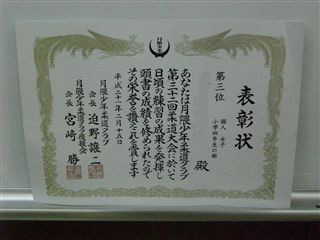 表彰状
第三位
個人 女子
小学四年生の部
殿
あなたは月隈少年柔道クラブ
第三十二回柔道大会に於いて
日頃の練習の成果を発揮し
頭書の成績を修められたので
その栄誉を讃えこれを賞します
平成二十一年二月十五日
月隈少年柔道クラブ
会長 迫野讓二
月隈少年柔道クラブ後援会
会長 宮崎 勝